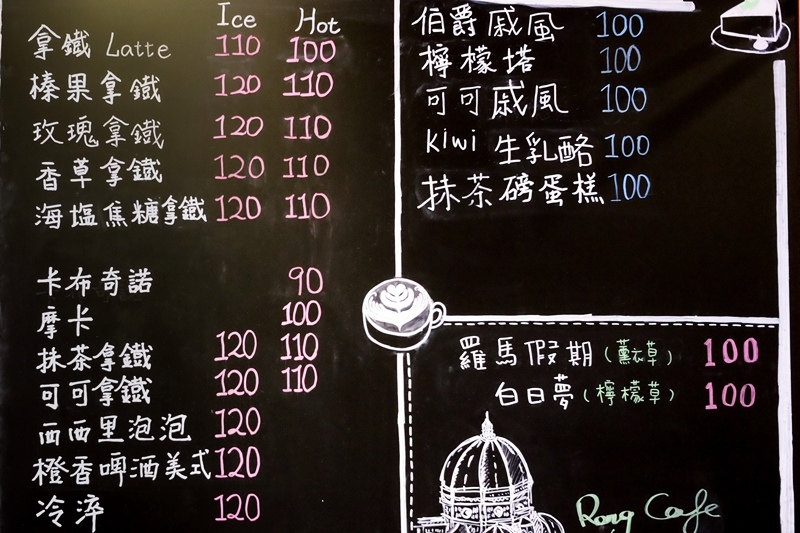 Ice Hot
拿鐵 Latte 110 100
榛果拿鐵 120 110
玫瑰拿鐵 120 110
香草拿鐵 120 110
海塩焦糖拿鐵 120 110
卡布奇諾 90
摩卡 100
抹茶拿鐵 120 110
可可拿鐵 120 110
西西里泡泡 120
橙香啤酒美式 120
冷淬 120
伯爵戚風 100
檸檬塔 100
可可戚風 100
kiwi 生乳酪 100
抹茶磅蛋糕 100
羅馬假期 (薰衣草) 100
白日夢 (檸檬草) 100
Rong Cafe